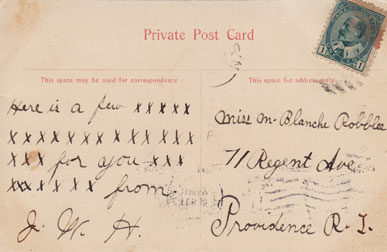 Private Post Card
This space may be used for correspondence
This space for address only
Here is a few x x x x x
x x x x x x x x x x x x
x x x for you x x x
x x x x x x from
J. W. H.
Miss M. Blanche Robblee
71 Regent Ave
Providence R. I.
1 1